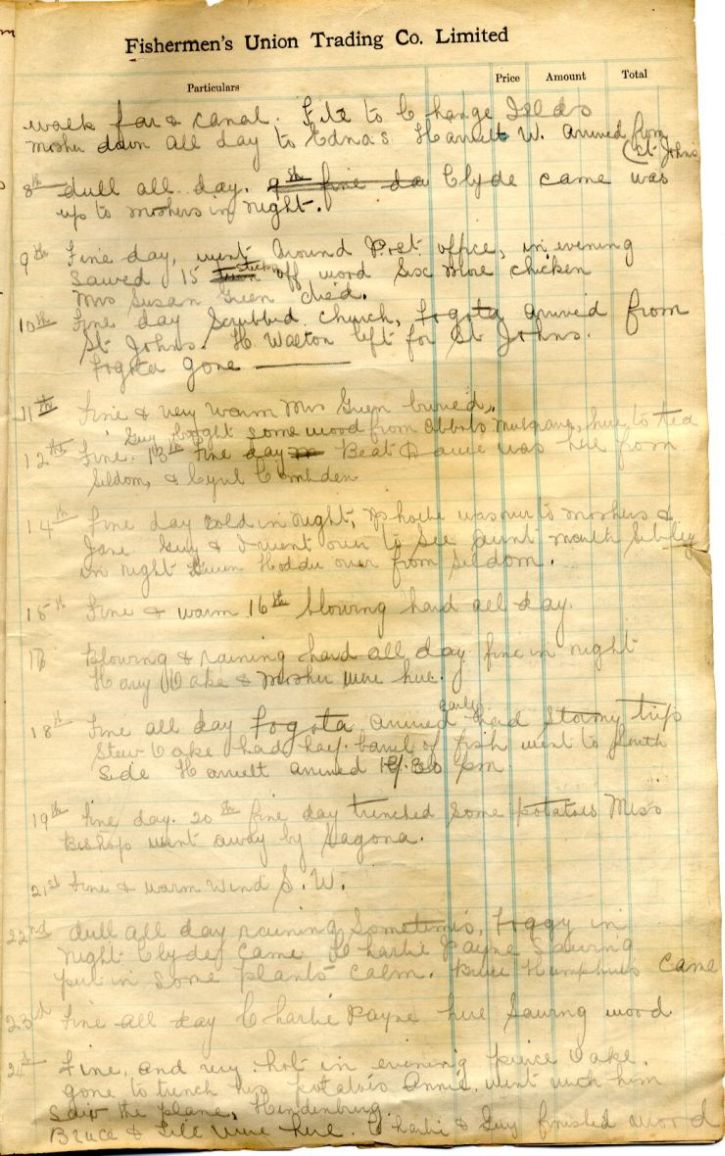 Fishermen's Union Trading Co. Limited
Particulars Price Amount Total
walk far & canal. to Change
Mosher down all day to Ednas Harriett W. arrived from
(St Johns
8th dull all day. 9th fine day Clyde came was
up to moshers in night.
9th Fine day, went around Post office, in evening
sawed 15 sticks off wood Six more chicken
Mrs Susan Green died.
10th Fine day Scrubbed church, Fogota arrived from
St Johns. H Walton left for St Johns.
Fogota gone
11th Fine & very warm Mrs Green buried.
Guy bought some wood from Mulgrave, here to tea
12th Fine. 13th Fine day Beat was here from
Seldom, & Cyril
14th Fine day cold in night, was over to moshers &
Jane Guy & I went over to see Aunt Sibley
in night Hodder over from Seldom.
15th Fine & warm 16th blowing hard all day.
17 Blowing & raining hard all day fine in night
Harry Oake & Mosher were here.
18th Fine all day Fogota arrived early had stormy trip
Stew Oake had half barrel of fish went to South
Side Harriett arrived 30 pm.
19th Fine day. 20th fine day trenched some potatoes Miss
Bishop went away by Sagona.
21st Fine & warm wind S. W.
22nd dull all day raining Sometimes, Foggy in
night Clyde came Charlie Payne Sawing
put in some plants calm. Humphries came
23rd Fine all day Charlie Payne here Sawing wood
24th Fine, and very hot in evening Oake.
gone to trench his potatoes Annie went with him
Saw the plane, Hindenburg.
Bruce & were here. Charlie & Guy finished wood